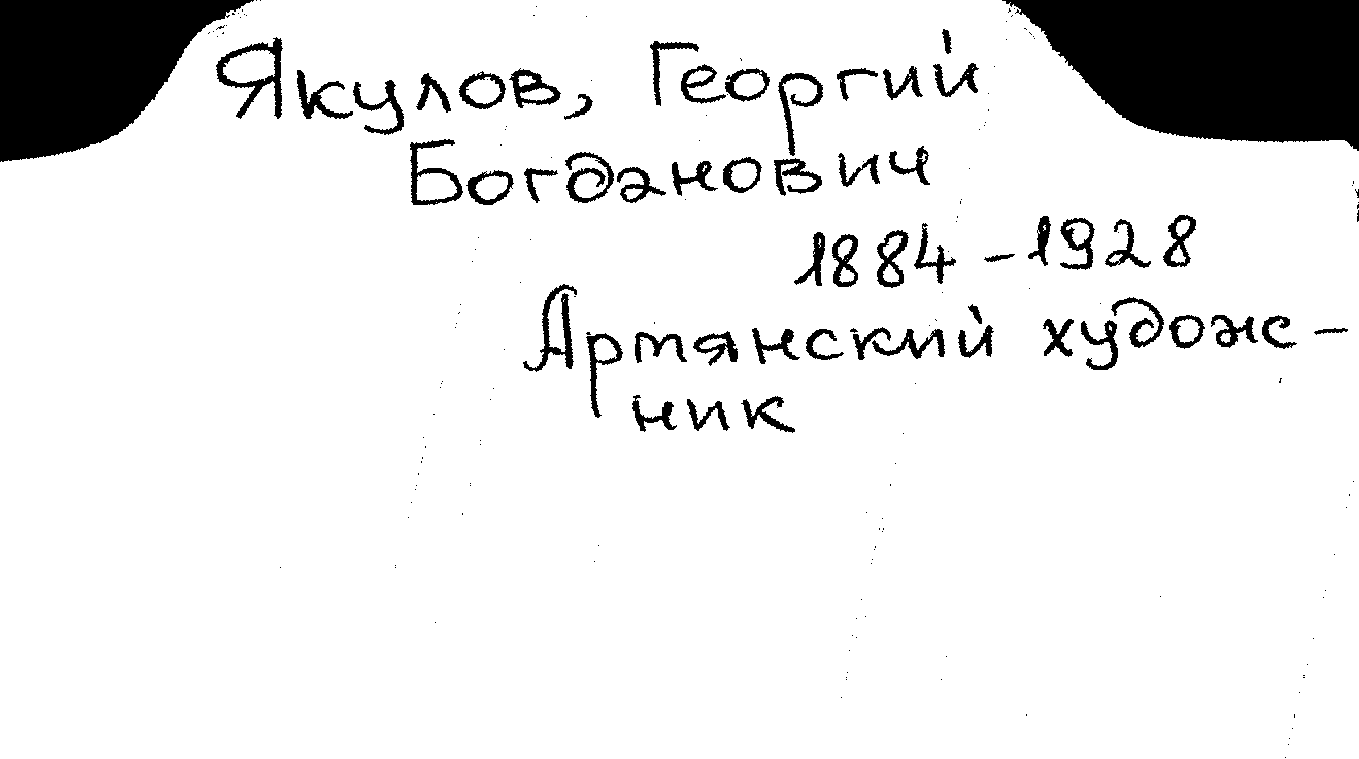 Якулов, Георгий
Богданович
1884-1928
Армянский худож-
ник